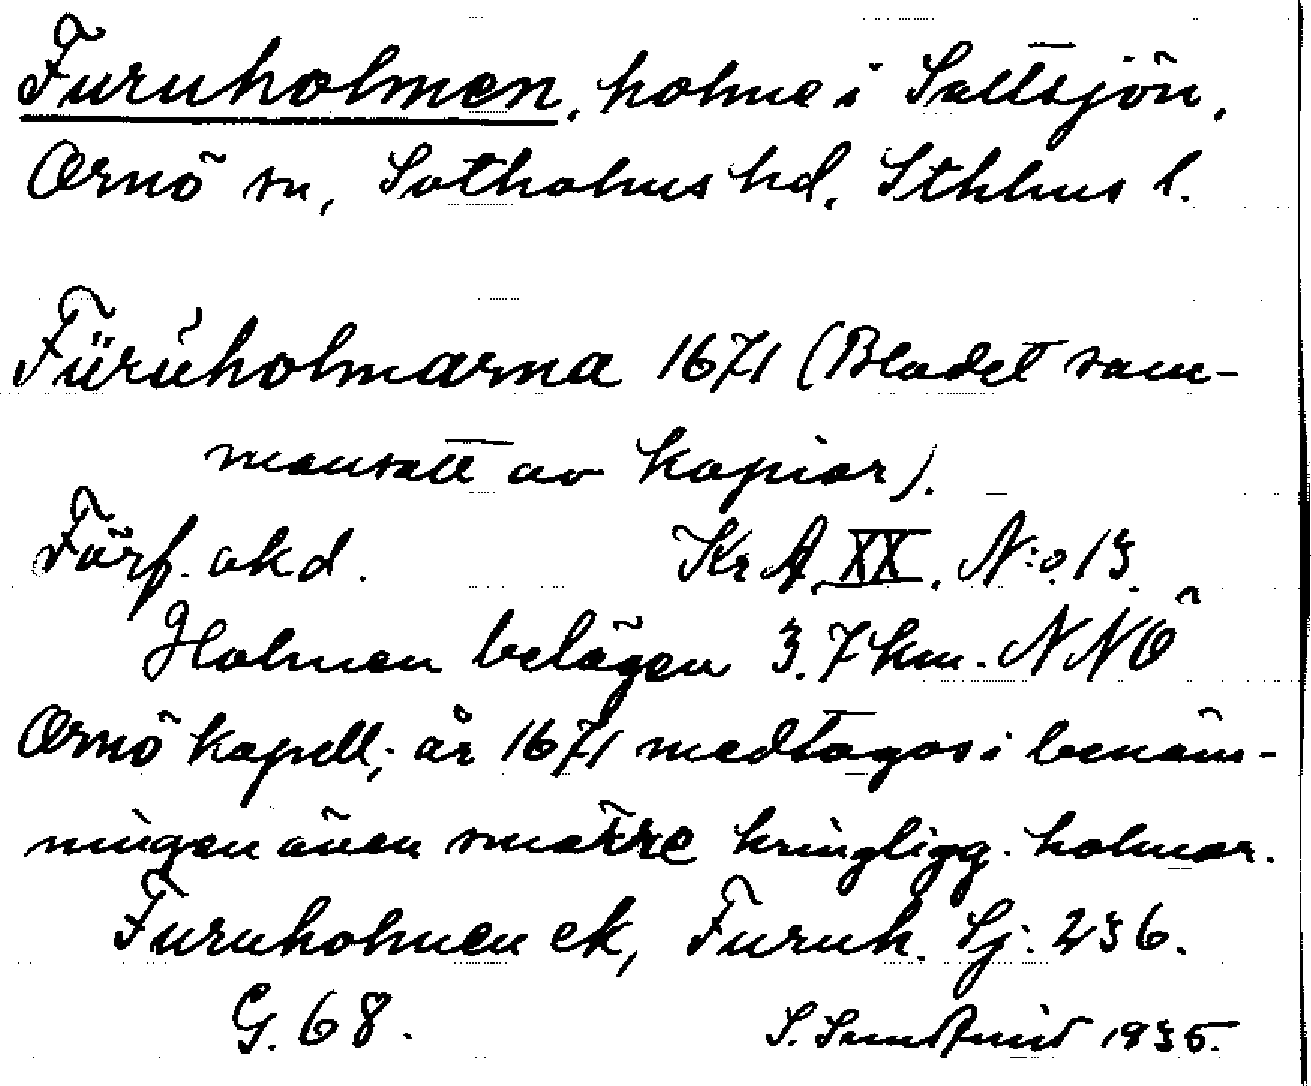 Furuholmen, holme i Saltsjön,
Ornö sn, Sotholms hd, Sthlms l.
Füruholmarna 1671 (Bladet sam-
mansatt av kopior).
Förf. okd. KrA XX. N:o 13.
Holmen belägen 3.7 km. NNÖ
Ornö kapell; år 1671 medtogos i benäm-
ningen även smärre kringligg. holmar.
Furuholmen ek, Furuh. Sj: 236.
G. 68. S. 1935.